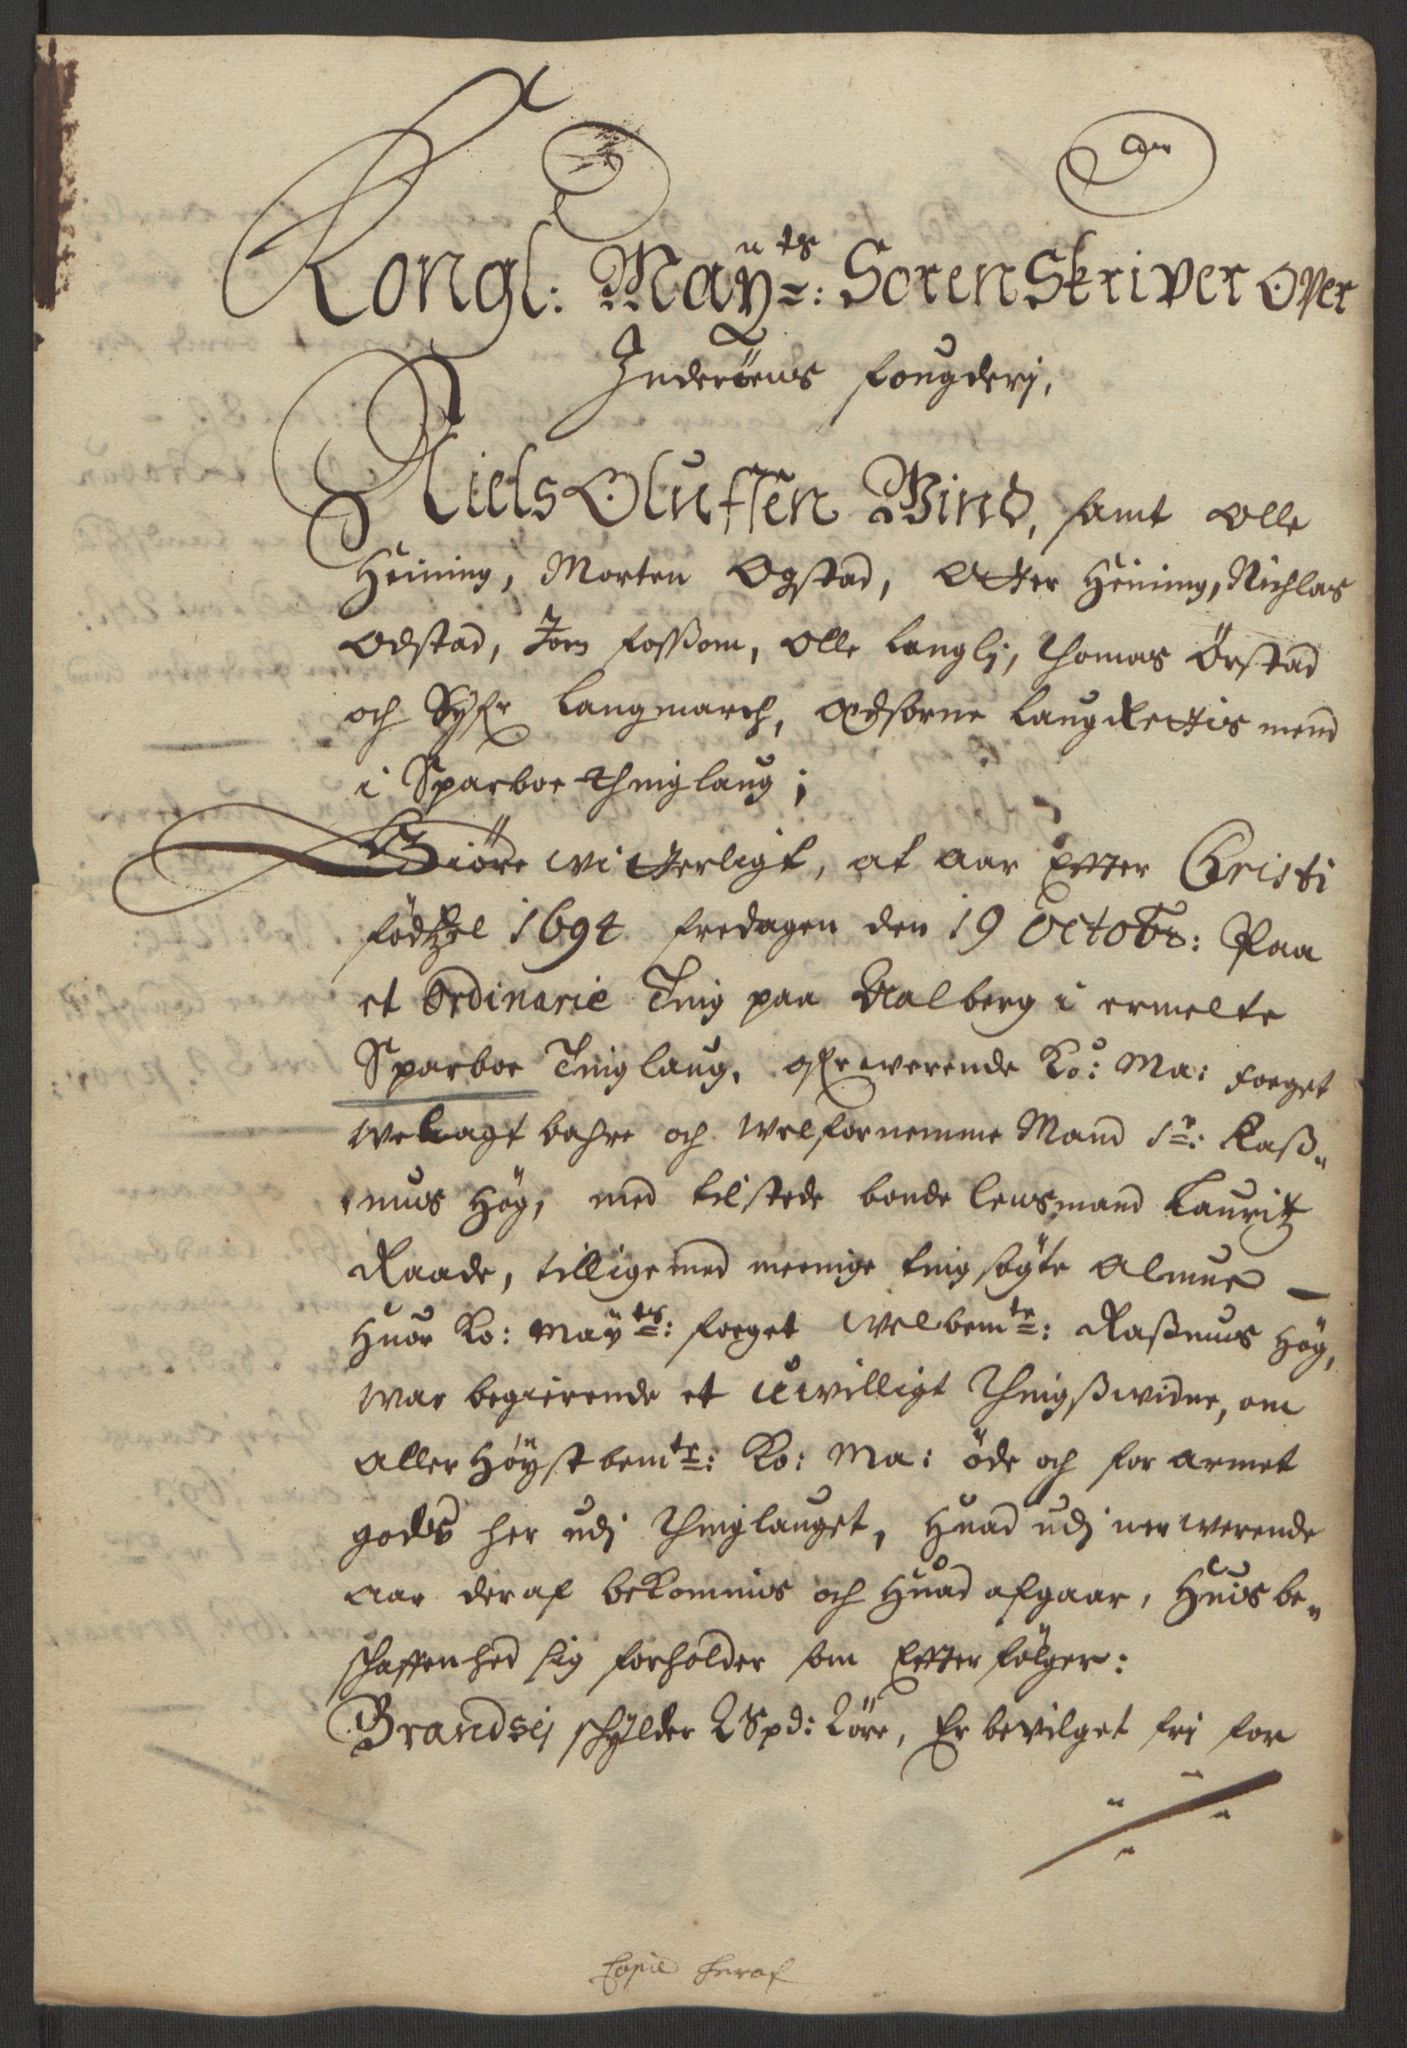 Kongl: Maÿ.ts: SorenSkriver Over
Inderöens fougderj,
Niels Olufsen Wind, samt Olle
Heining, Morten Ogstad, Otter Heining, Nichlas
Odstad, Jon fossom, Olle Langlj, Thomas Örstad
och Syfr Langmarch, Edsorne Laug Rettis mend
i Sparboe Thinglaug;
Giöre witterligt, at aar Efter Christi
födtzel 1694 fredagen den 19 Octobr: Paa
et Ordinarie Ting paa Aalberg i ermelte
Sparboe Tinglaug, ofverwerende Ko: Ma: foeget
Welagtbahre och Welfornemme Mand Sr: Raß„
mus Hög, med tilstede bonde lensmand Lauritz
Raade, tillige med meenige ting søgte Almue —
Huor Ko: Maÿts: foeget Welbemte: Raßmus Hög,
War begierende et uwilligt Thingßwidne, om
Aller Höÿstbemte: Ko: Ma: öde och for armet
gods her udj Thinglauget, Huad udj nerwerende
Aar deraf bekommis och Huad afgaar, Huis be„
schaffenhed sig forholder som Efterfölger:
Brandsej schylder 2 Spd: 2 öre, Er bevilget frj for
Copie heraf